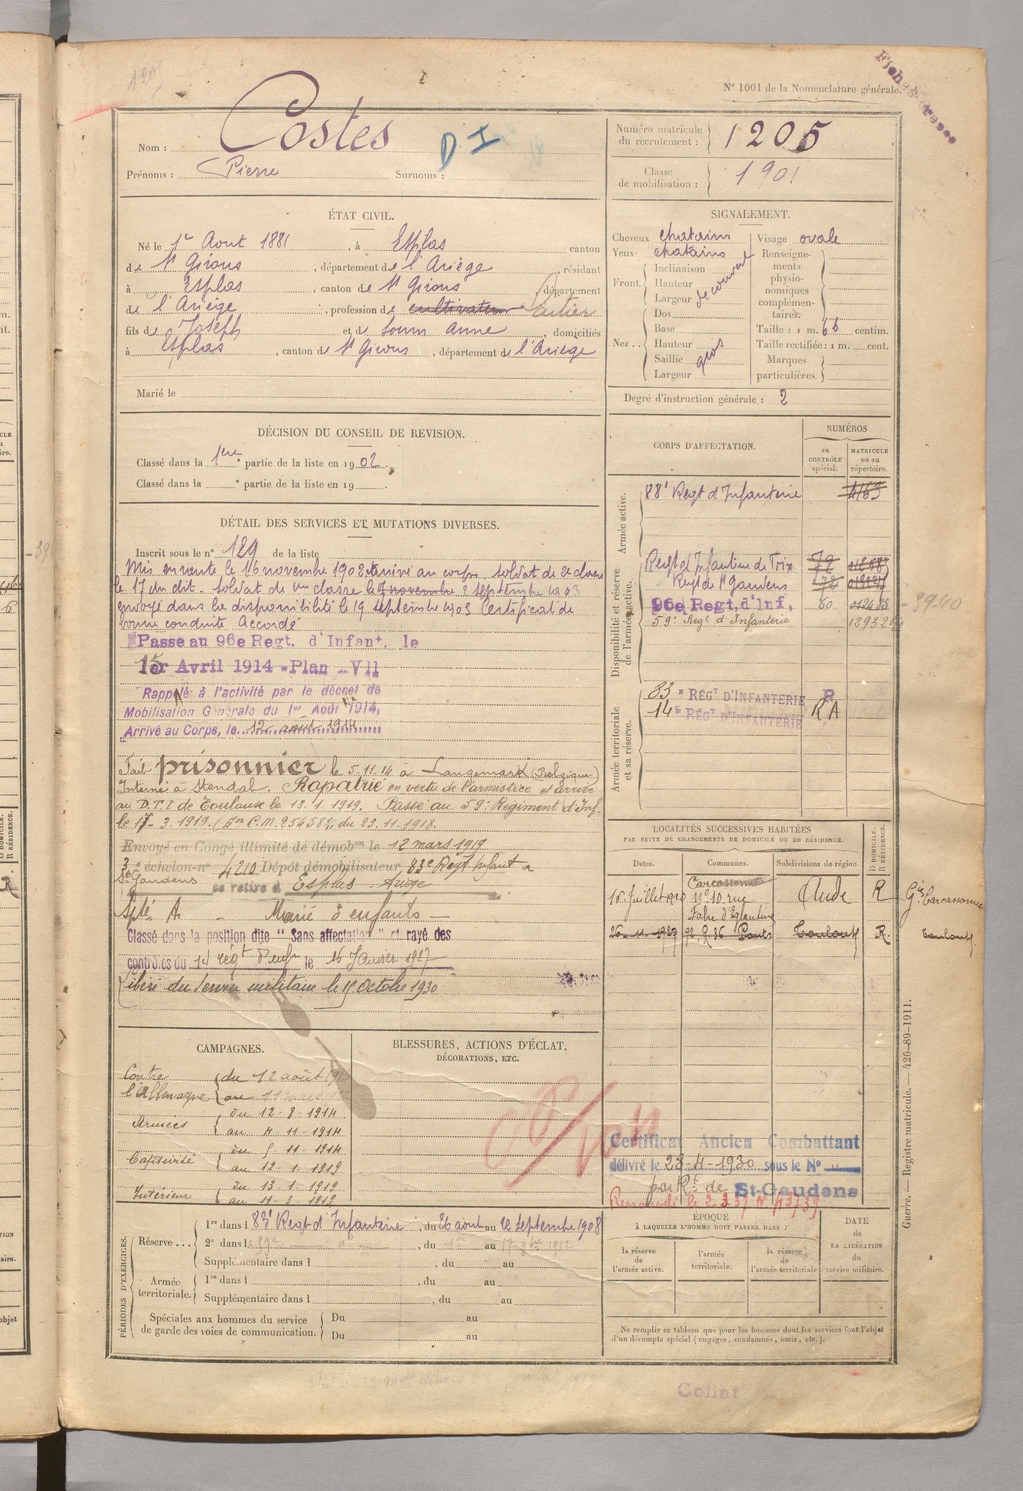 N° 1001 de la Nomenclature générale.
Nom : Costes
D I
Prénoms : Pierre Surnoms :
Numéro matricule du recrutement : 1205
Classe de mobilisation : 1901
ÉTAT CIVIL.
Né le 1er Aout 1881, à Esplas canton
de St Girons, département de l'Ariège, résidant
à Esplas, canton de St Girons département
de l'Ariège, profession de cultivateur
fils de Joseph et de Anne, domiciliés
à Esplas, canton de St Girons, département de l'Ariège
Marié le
SIGNALEMENT.
Cheveux chatains
Yeux chatains
Front Inclinaison Hauteur Largeur découvert
Nez Dos Base Hauteur Saillie Largeur gros
Visage ovale
Renseignements physionomiques complémentaires.
Taille : 1 m. 66 centim.
Taille rectifiée : 1 m. cent.
Marques particulières.
Degré d'instruction générale : 2
DÉCISION DU CONSEIL DE REVISION.
Classé dans la 1ère partie de la liste en 1902.
Classé dans la ° partie de la liste en 19
DÉTAIL DES SERVICES ET MUTATIONS DIVERSES.
Inscrit sous le n° 129 de la liste
Mis en route le 16 novembre 1902. arrivé au corps, soldat de 2e classe
le 17 du dit. Soldat de 1ère classe le 7 novembre 2 septembre 1903
envoyé dans la disponibilité le 19 septembre 1903 Certificat de
bonne conduite Accordé
Passe au 96e Regt. d'Infant. le
1er Avril 1914 - Plan - VII
Rappelé à l'activité par le décret de
Mobilisation Générale du 1er Août 1914,
Arrivé au Corps, le 12 août 1914
Fait prisonnier le 5.11.14 à Langemark (Belgique)
Interné à Stendal. Rapatrié en vertu de l'armistice et arrivé
au D.T.I de Toulouse le 13.1.1919. Passé au 59e Régiment d'Inf.
le 17-3.1919.
Envoyé en Congé illimité de démobon le 12 mars 1919
3e échelon n° 4210 Dépôt démobilisateur 83e Regt Infant à
St Gaudens se retire à Esplas Ariège
Marié 3 enfants
Classé dans la position dite "Sans affectation" et rayé des
contrôles du 14 regt d'infie le 16 Janvier 1927
Libéré du service militaire le 15 Octobre 1930
CORPS D'AFFECTATION.
NUMÉROS
au CONTRÔLE spécial.
MATRICULE ou au répertoire.
Armée active.
88e Regt d'Infanterie 4163
Disponibilité et réserve de l'armée active.
Regt d'Infanterie de Foix 72
Regt de St Gaudens
96e Regt, d'Inf. 60 3940
59e Regt d'Infanterie
Armée territoriale et sa réserve.
83e RÉGT D'INFANTERIE R
14e RÉGT D'INFANTERIE R A
LOCALITÉS SUCCESSIVES HABITÉES
PAR SUITE DE CHANGEMENTS DE DOMICILE OU DE RÉSIDENCE.
Dates. Communes. Subdivisions de région. D DOMICILE. R RÉSIDENCE.
Carcassonne N° 10 rue Fabre d'Eglantine Aude R Gie Carcassonne
26-11-1927 Toulouse R. Toulouse
CAMPAGNES.
Contre l'Allemagne du 12 août
au 11 mars
Armées du 12-8-1914
au 4-11-1914
Captivité du 5-11-1914
au 12-1-1919
Intérieur du 13-1-1919
au 11-3-1919
BLESSURES, ACTIONS D'ÉCLAT, DÉCORATIONS, ETC.
Certificat Ancien Combattant
délivré le 28-4-1930 sous le N°
par Rt de St-Gaudens
PÉRIODES D'EXERCICES.
Réserve 1re dans l 88e Regt d'Infanterie, du 26 aout au 22 septembre 1908
2e dans l , du au
Supplémentaire dans l , du au
Armée territoriale. 1re dans l , du au
Supplémentaire dans l , du au
Spéciales aux hommes du service de garde des voies de communication. Du au
Du au
ÉPOQUE À LAQUELLE L'HOMME DOIT PASSER DANS :
la réserve de l'armée active.
l'armée territoriale.
la réserve de l'armée territoriale
DATE de LA LIBÉRATION du service militaire.
Ne remplir ce tableau que pour les hommes dont les services font l'objet d'un décompte spécial (engagés, condamnés, omis, etc.).
Guerre. — Registre matricule. — 426-89-1911.
Collat